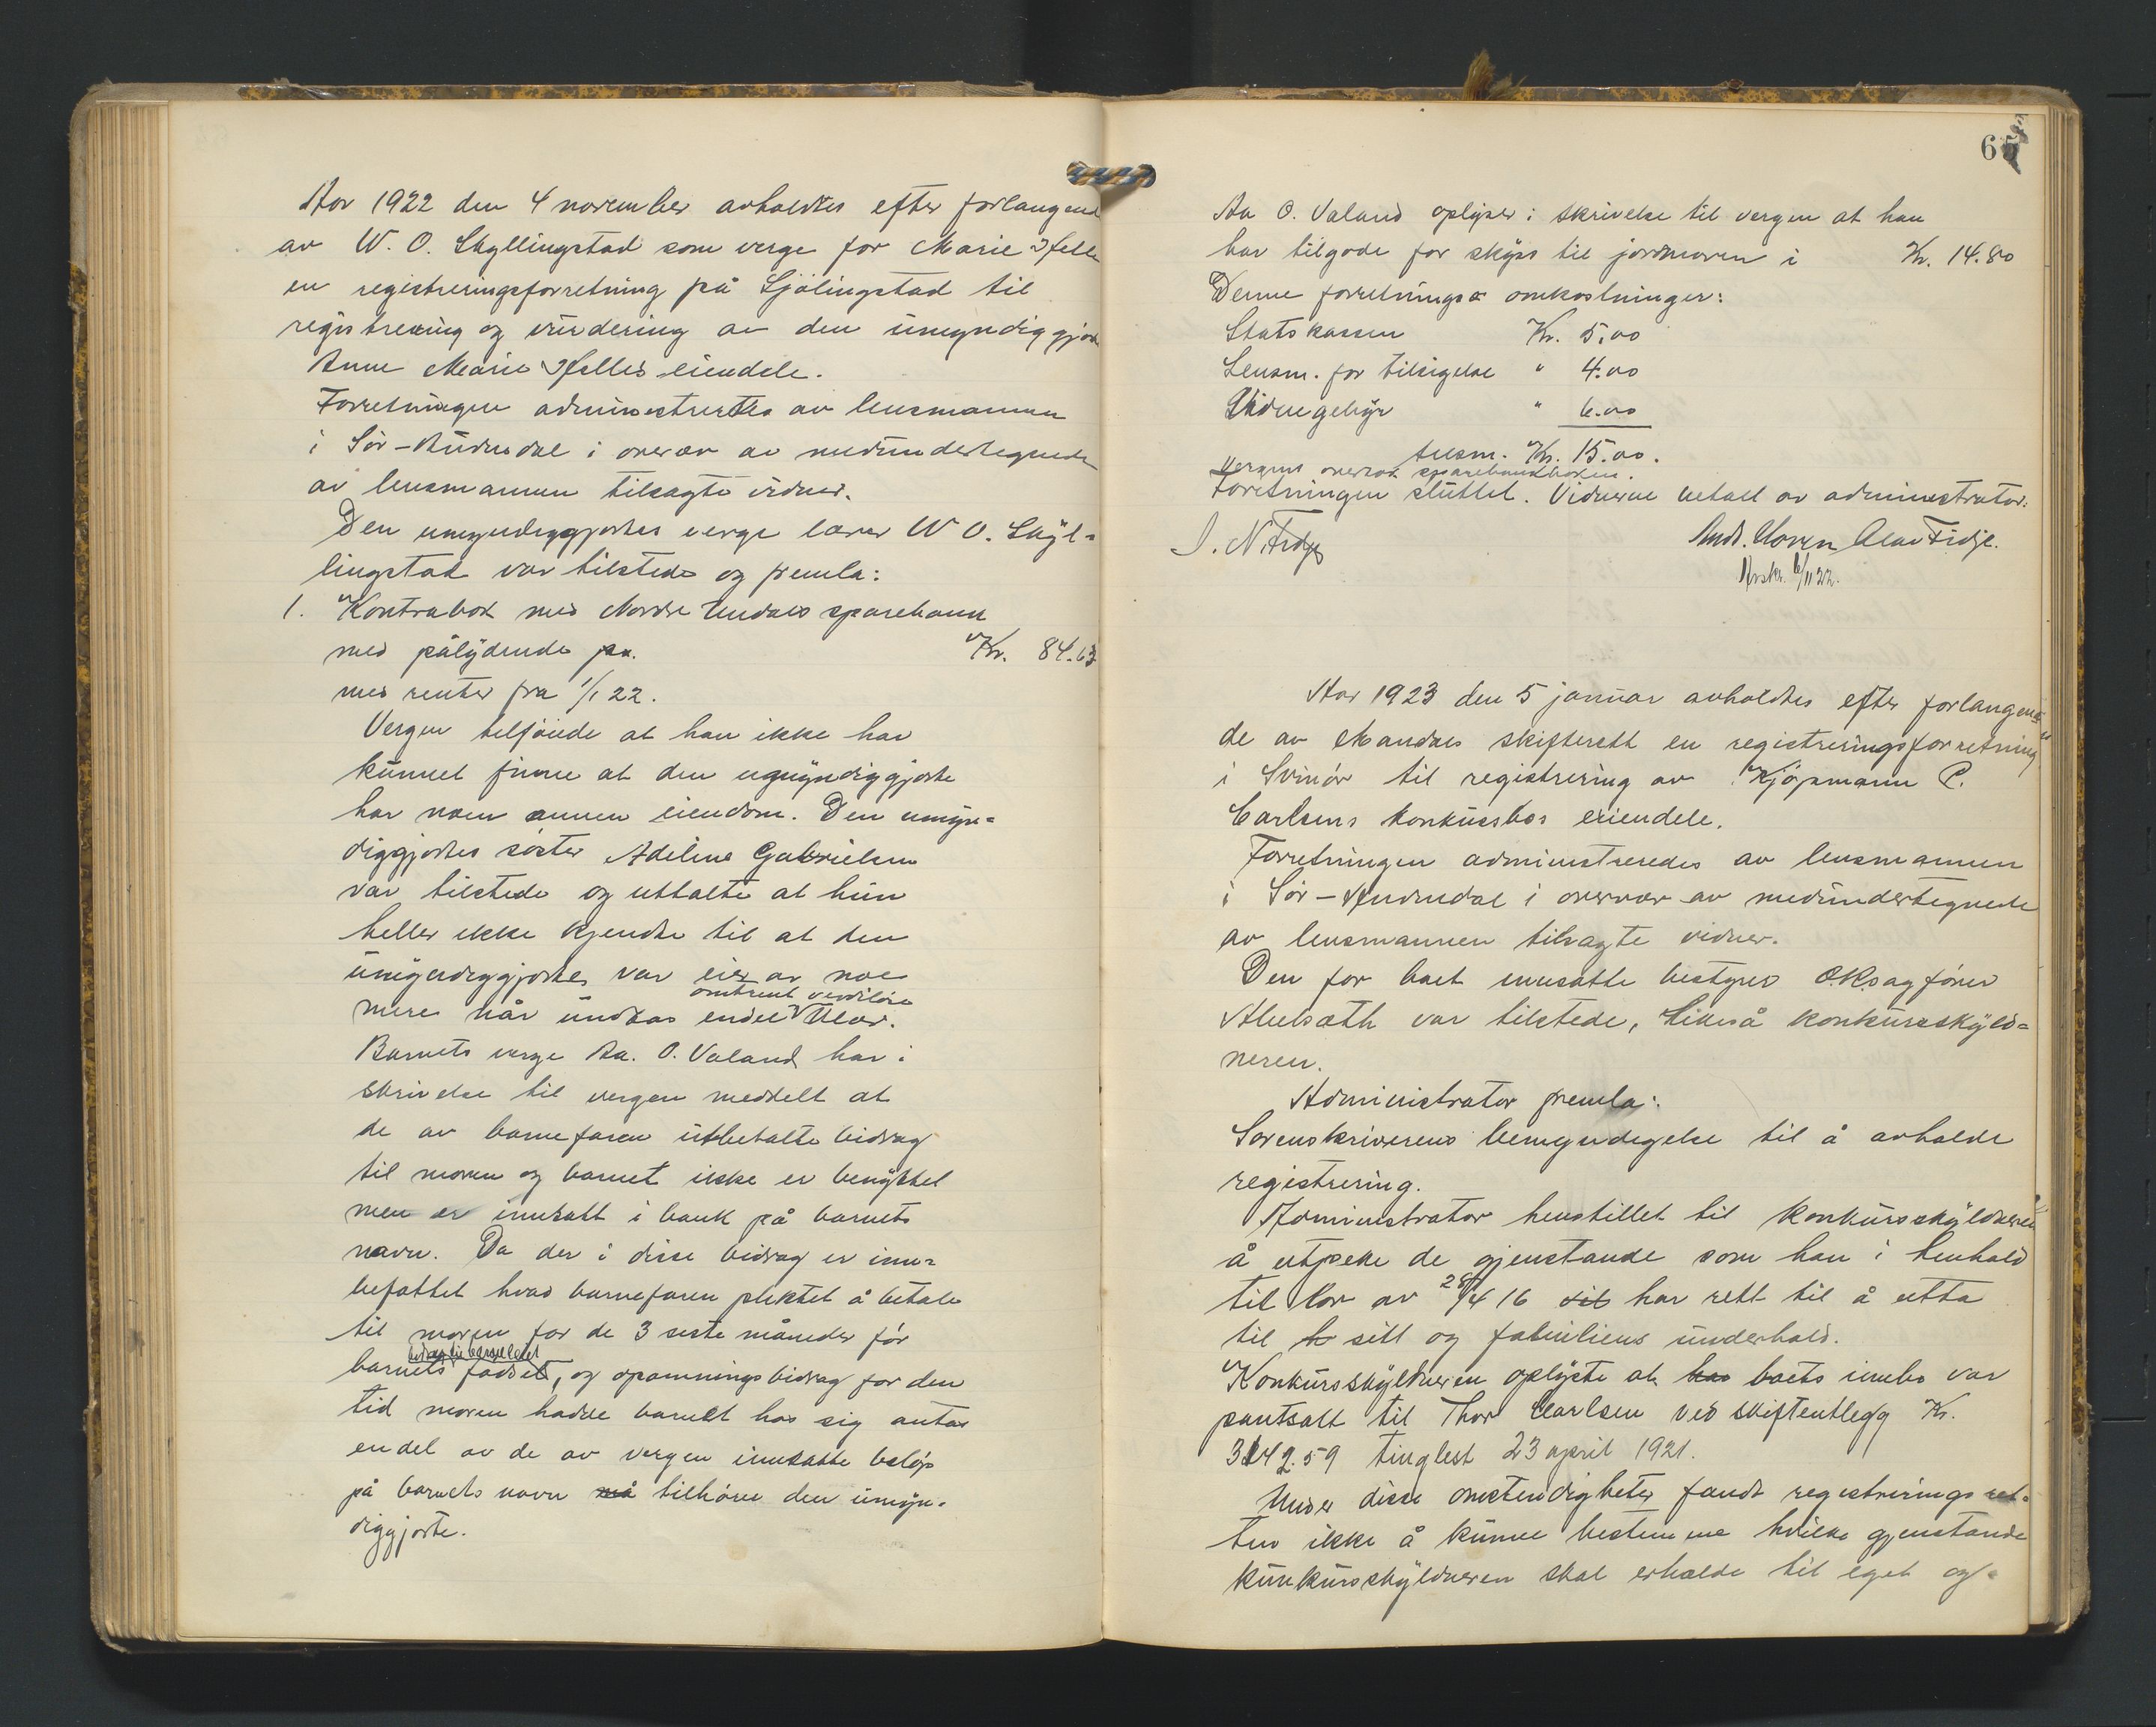 Aar 1922 den 4 november avholdtes efter forlangend
av W. O. Skyllingstad som verge for Marie Helle
en registreringsforretning på Sjölingstad til
registrering og vurdering av den umyndiggjor
Anne Marie Helles eiendele.
Forretningen administrertes av lensmannen
i Sör-Audnedal i overvær av medundertegnede
av lensmannen tilsagte vidner.
Den umyndiggjortes verge lærer W O. Skyl=
lingstad var tilstede og fremla:
1. Kontrabok med Nordre Undals sparebank
med pålydende pr. Kr. 84.63
med renter fra 1/1 22.
Vergen tilföiede at han ikke har
kunnet finne at den umyndiggjorte
har noen annen eiendom. Den umyn=
diggjortes söster Adeline Gabrielsen
var tilstede og uttalte at hun
heller ikke kjendte til at den
umyndiggjortes var eier av noe
omtrent verdilöse
mere når undtas endel klær.
Barnets verge Aa. O. Valand har i
skrivelse til vergen meddelt at
de av barnefaren utbetalte bidrag
til moren og barnet ikke er benyttet
men er innsatt i bank på barnets
navn. Da der i disse bidrag er inn=
befattet hvad barnefaren pliktet å betale
til moren for de 3 siste måneder för
bidrag til barselleiet
barnets födsel, og opamningsbidrag for den
tid moren hadde barnet hos sig antas
endel av de av vergen innsatte belöp
på barnets navn må tilhöre den umyn=
diggjorte.
65
Aa O. Valand oplyser i skrivelse til vergen at han
har tilgode for skyss til jordmoren i Kr. 14.80
Denne forretnings omkostninger:
Statskassen Kr. 5.00
Lensm. for tilsigelse " 4.00
Vidnegebyr " 6.00
tilsm. Kr. 15.00.
Vergens overtok sparebankboken.
Forretningen sluttet. Vidnerne betalt av administrator.
J. N. Fidje Andr. Hoven Olav Fidje.
Avskr. 6/11 22.
Aar 1923 den 5 januar avholdtes efter forlangen=
de av Mandals skifterett en registreringsforretning
i Svinör til registrering av Kjöpmann C.
Carlsens konkursbos eiendele.
Forretningen administreredes av lensmannen
i Sör-Audnedal i overvær av medundertegnede
av lensmannen tilsagte vidner.
Den for boet innsatte bestyrer O.R.sagförer
Abelseth var tilstede, likeså konkursskyld=
neren.
Administrator fremla:
Sorenskriverens bemyndigelse til å avholde
registrering.
Administrator henstillet til konkursskyldneren
å utpeke de gjenstande som han i henhold
til lov av 28/4 16 til har rett til å utta
til h sitt og fabmiliens underhold.
Konkursskyldneren oplyste at has boets innbo var
pantsatt til Thor Carlsen ved skiftentlegg Kr.
3142.59 tinglest 23 april 1921.
Under disse omstendigheter fandt registreringsret=
ten ikke å kunne bestemme hvilke gjenstande
kunkursskyldneren skal erholde til eget og